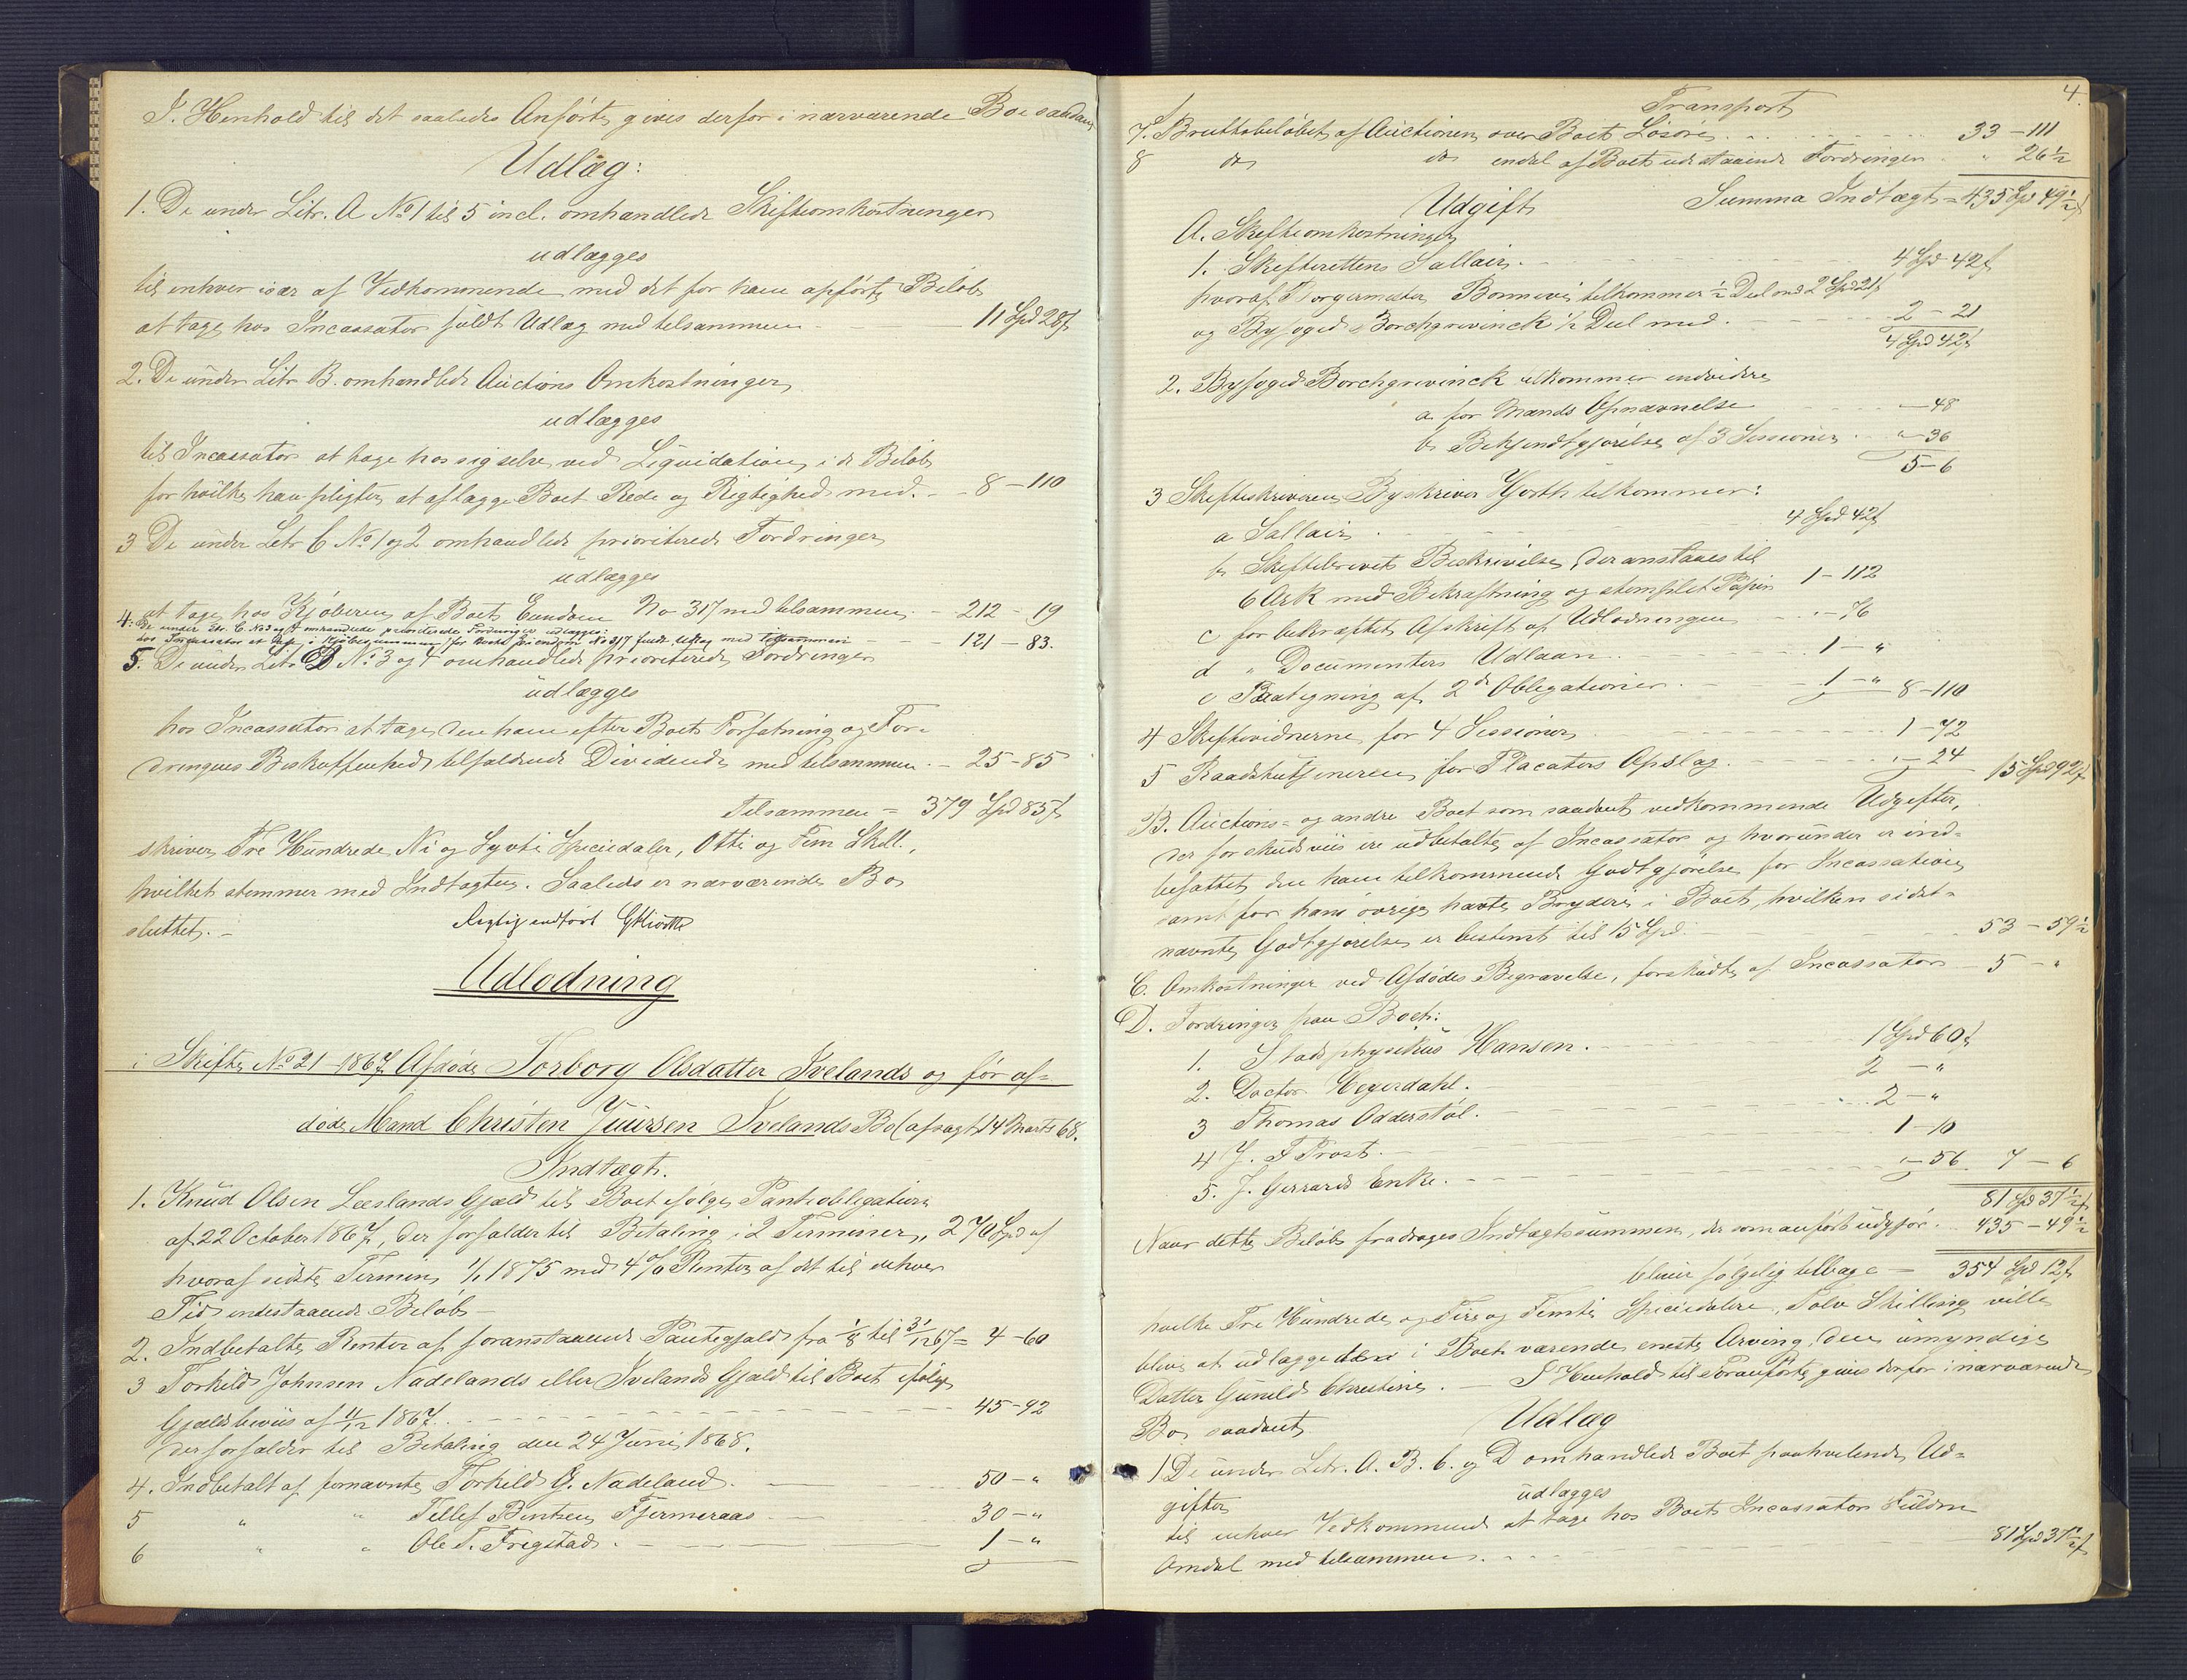 I Henhold til det saaledes Anførte gives derfor i nærværende Bo saadant
Udlæg:
1. De under Litr. A No 1 til 5 incl. omhandlede Skifteomkostninger
udlægges
til enhver især af Vedkommende med det for ham opførte Beløb
at tage hos Incassator fuldt Udlæg med tilsammen - 11 Spd 28 s
2. De under Litr B. omhandlede Auctions Omkostninger
udlægges
til Incassator at tage hos sig selv ved Liquidation i de Beløb
for hvilke han pligter at aflægge Boet Rede og Rigtighed med. - 8 - 110
3 De under Litr C No 1 og 2 omhandlede prioriterede Fordringer
udlægges
at tage hos Kjøberen af Boets Eiendom No 317 med tilsammen - 212 - 19
4. De under Litr. C. No 3 og 4 omhandlede prioriterede Fordringer udlægges:
hos Incassator at tage i Kjøbesummen for Boets Eiendom No 317 fuldt Udlæg med tilsammen 121 - 83.
5. De under Litr D No 3 og 4 omhandlede prioriterede Fordringer
udlægges
hos Incassator at tage den ham efter Boets Forfatning og For-
dringens Beskaffenhed tilfaldende Dividende med tilsammen. - 25 - 85
Tilsammen = 379 Spd 85 s
skriver Tre Hundrede Ni og Syvti Speciedaler, Otti og Fem Skill.,
hvilket stemmer med Indtægten. Saaledes er nærværende Bo
sluttet. - Rigtig indført
Udlodning
i Skifte No 21 - 1867 Afdøde Torborg Olsdatter Ivelands og før af-
døde Mand Christen Juursen Ivelands Bo (afsagt 14 Marts 68.
Indtægt.
1. Knud Olsen Løeslands Gjæld til Boet ifølge Panteobligation
af 22 October 1867, der forfalder til Betaling i 2 Terminer, 270 Spd af
hvoraf sidste Termin 1/1 1875 med 4% Renter af det til enhver
Tid indestaaende Beløb -
2. Indbetalte Renter af foranstaaende Pantegjæld fra 1/8 til 31/12 67 = 4 - 60
3 Torkild Johnsen Nadelands eller Ivelands Gjæld til Boet ifølge
Gjældsbeviis af 11/12 1867. - 45 - 92
der forfalder til Betaling den 24 Juni 1868.
4. Indbetalt af fornævnte Torkild J. Nadeland. - 50 - "
5 " " Tellef Bentsen Fjermeraas - 30 - "
6 " " Ole T. Frigstad. - 1 - "
4.
Transport
7. Bruttobeløbet af Auctionen over Boets Løsøre - 33 - 111
8 do do endel af Boets udestaaende Fordringer - " 26 1/2
Summa Indtægt = 435 Spd 49 1/2 s
Udgift
A. Skifteomkostninger
1. Skifterettens Sallair. - 4 Spd 42 s
hvoraf Borgermester Bonnevie tilkommer 1/2 Deel med 2 Spd 21 s
og Byfoged Borchgrevinck 1/2 Deel med. - 2 - 21
4 Spd 42 s
2. Byfoged Borchgrevinck tilkommer endvidere
a for Mænds Opnævnelse - 48
b Bekjendtgjørelse af 3 Sessioner. " - 36
5 - 6
3 Skifteskriveren Byskriver Hjorth tilkommer:
a Sallair - 4 Spd 42 s
b Skiftebrevets Beskrivelse, der anslaaes til
6 Ark med Bekræftning og stemplet Papir 1 - 112
c for bekræftet Afskrift af Udlodningen " - 76
d " Documenters Udlaan. - 1 - "
e Paategning af 2de Obligationer. - 1 - " 8 - 110
4 Skiftevidnerne for 4 Sessioner - 1 - 72
5 Raadstutjeneren for Placaters Opslag. - " - 24 15 Spd 92 s
B. Auctions- og andre Boet som saadant vedkommende Udgifter,
der forskudsviis ere udbetalte af Incassator og hvorunder er ind-
befattet den ham tilkommende Godtgjørelse for Incassation
samt for hans øvrige havte Bryderi i Boet, hvilken sidst-
nævnte Godtgjørelse er bestemt til 15 Spd. - 53 - 59 1/2
C. Omkostninger ved Afdødes Begravelse, forskudte af Incassator 5 - "
D. Fordringer paa Boet:
1. Stadsphysikus Hansen. - 1 Spd 60 s
2. Doctor Hegerdahl. - 2 - "
3 Thomas Odderstøl. - 2 - "
4 J. F Frost. - 1 - 10
5. J. Gerrards Enke. - " - 56. 7 - 6
81 Spd 37 1/2 s
Naar dette Beløb fradrages Indtægtssummen, der som anført udgjør. 435 - 49 1/2
bliver følgelig tilbage - 354 Spd 12 s
hvilke Tre Hundrede og Fire og Femti Speciedaler, Tolv Skilling ville
blive at udlægge den i Boet værende eneste Arving, den umyndige
Datter Gunild Christine. - I Henhold til Foranførte gives derfor i nærværende
Bo saadant Udlæg
1. De under Litr. A. B. C. og D omhandlede Boet paahvilende Ud-
gifter udlægges
til enhver Vedkommende at tage hos Boets Incassator Fuldm
Omdal med tilsammen. - 81 Spd 37 1/2 s